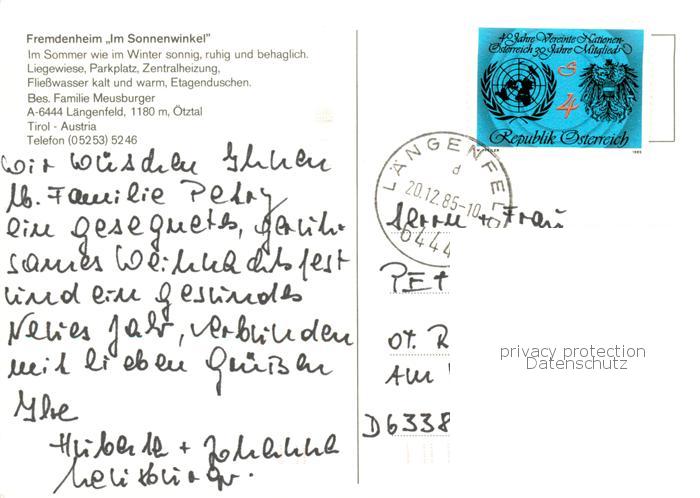 Fremdenheim „Im Sonnenwinkel"
Im Sommer wie im Winter sonnig, ruhig und behaglich.
Liegewiese, Parkplatz, Zentralheizung,
Fließwasser kalt und warm, Etagenduschen.
Bes. Familie Meusburger
A-6444 Längenfeld, 1180 m, Ötztal
Tirol - Austria
Telefon (05253) 5246
wir wüschen Ihnen
lb. Familie Petry
ein gesegnetes, geruh-
sames Weihnachtsfest
und ein gesundes
Neues Jahr, verbunden
mit lieben Grüßen
Ihre
Huberta + Johanna
Meusburger.
40 Jahre Vereinte Nationen-
Österreich 30 Jahre Mitglied
S
4
Republik Österreich
1985
LÄNGENFELD
d
20.12.85-10
6444
Herrn + Frau
PET
OT. R
Am
D6338
privacy protection
Datenschutz